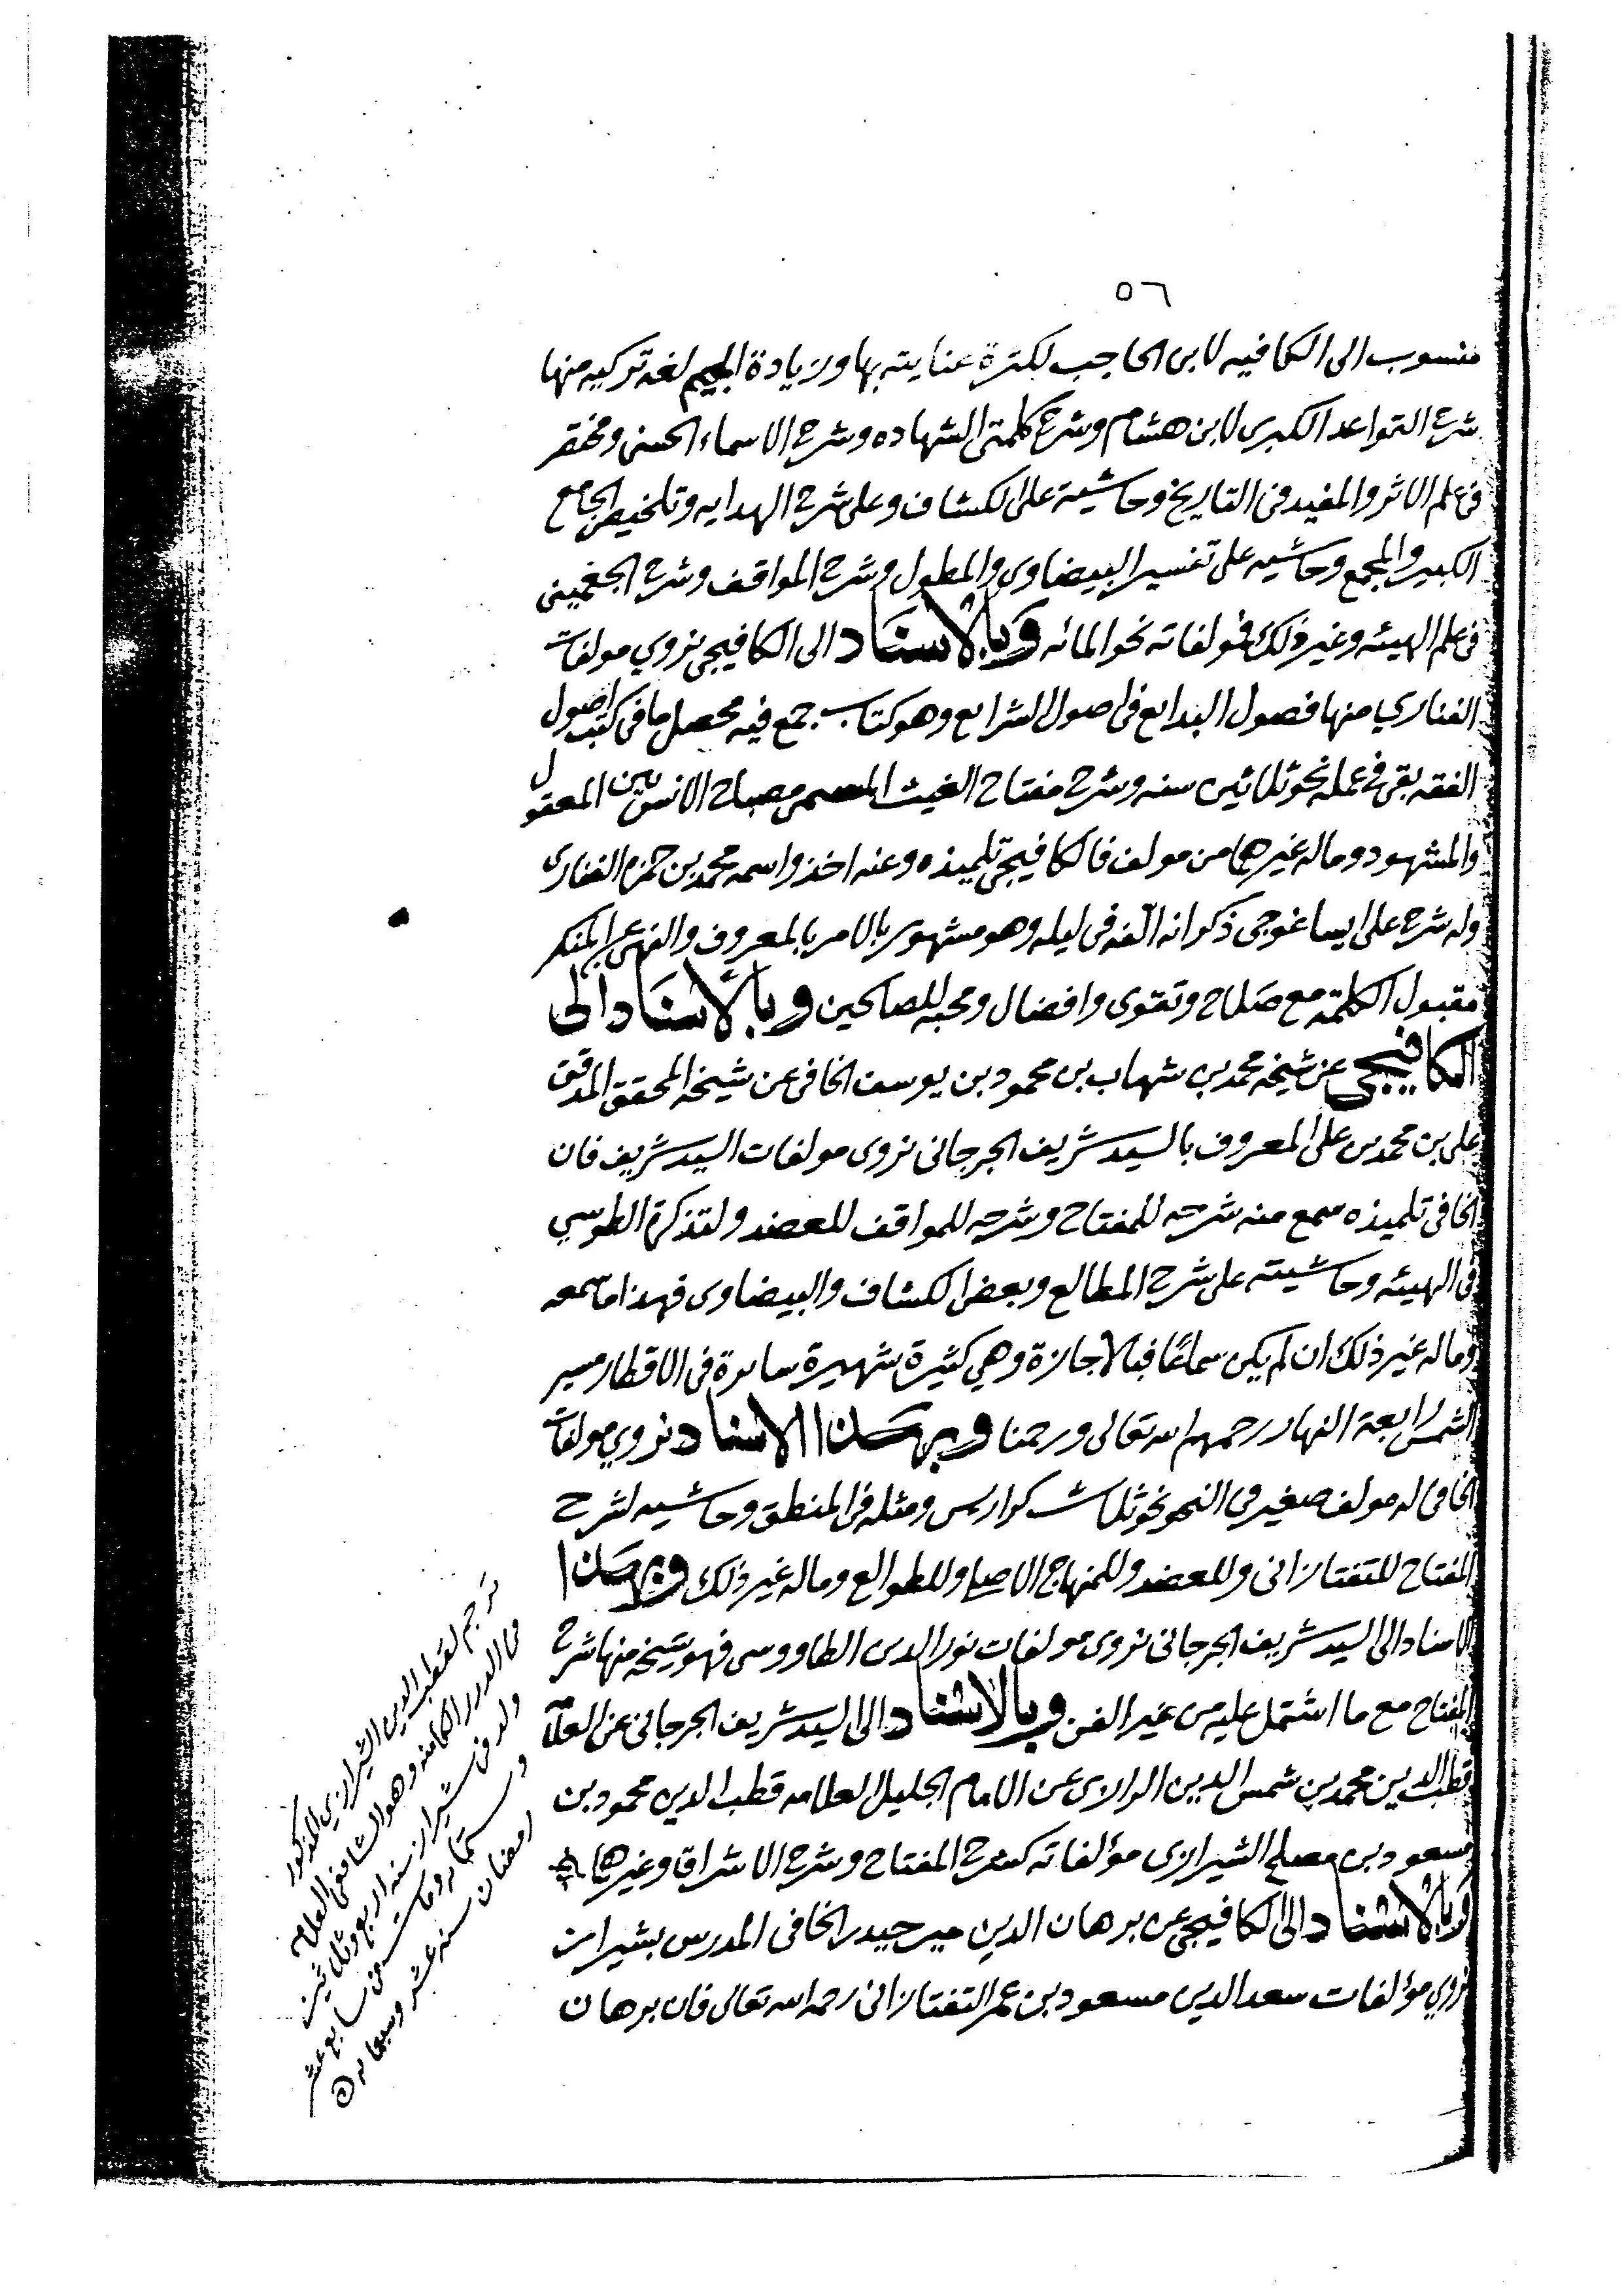 ٥٦
منسوب الى الكافيه لابن الحاجب لكثرة عنايته بها وزيادة الجيم لغه تركيه منها
شرح القواعد الكبرى لابن هشام وشرح كلمتى الشهاده وشرح الاسماء الحسنى ومختصر
فى علم الاثر والمفيد فى التاريخ وحاشية على الكشاف وعلى شرح الهدايه وتلخيص الجامع
الكبير والمجمع وحاشيه على تفسير البيضاوى والمطول وشرح المواقف وشرح الجغمينى
فى علم الهيئه وغير ذلك فمولفاته نحو المائه وبالاسناد الى الكافيجى نروي مولفات
الفناري منها فصول البدايع فى اصول الشرايع وهو كتاب جمع فيه محصل ما فى كتب اصول
الفقه بقى فى عمله نحو ثلاثين سنه وشرح مفتاح الغيب المسمى مصباح الانس بين المعقول
والمشهود وماله غيرها من مولف فالكافيجى تلميذه وعنه اخذ واسمه محمد بن حمزه الفنارى
وله شرح على ايساغوجى ذكر انه الّفه فى ليله وهو مشهور بالامر بالمعروف والنهى عن المنكر
مقبول الكلمة مع صلاح وتقوى وافضال ومحبه للصالحين وبالاسناد الى
الكافيجى عن شيخه محمد بن شهاب بن محمود بن يوسف الخافى عن شيخه المحقق المدقق
على بن محمد بن على المعروف بالسيد شريف الجرجانى نروى مولفات السيد شريف فان
الخافى تلميذه سمع منه شرحه للمفتاح وشرحه للمواقف للعضد ولتذكرة الطوسي
فى الهيئه وحاشيته على شرح المطالع وبعض الكشاف والبيضاوى فهذا ما سمعه
وماله غير ذلك ان لم يكن سماعًا فبالاجازة وهي كثيرة شهيرة سايرة فى الاقطار مسير
الشمس رابعة النهار رحمهم الله تعالى ورحمنا وبهـــذا الاسناد نروي مولفات
الخافى له مولف صغير في النحو نحو ثلاث كراريس ومثله فى المنطق وحاشيه لشرح
المفتاح للتفتازانى وللعضد وللمنهاج الاصلى وللطوالع وماله غير ذلك وبهـــذا
الاسناد الى السيد شريف الجرجانى نروى مولفات نور الدين الطاووسى فهو شيخه منها شرح
المفتاح مع ما اشتمل عليه من غير الفن وبالاسناد الى السيد شريف الجرجانى عن العلامة
قطب الدين محمد بن شمس الدين الرازى عن الامام الجليل العلامه قطب الدين محمود بن
مسعود بن مصلح الشيرازى مؤلفاته كشرح المفتاح وشرح الاشراق وغيرها
وبالاسناد الى الكافيجى عن برهان الدين مير حيدر الخافى المدرس بشيراز
نروي مؤلفات سعد الدين مسعود بن عمر التفتازانى رحمه الله تعالى فان برهان
ترجم لقطب الدين الشيرازي المذكور
فى الدرر الكامنه وهو الشافعى العلامه
ولد فى شيراز سنه اربع وثلاثين
وستمائه ومات فى سابع عشر
رمضان سنه عشر وسبعمائه